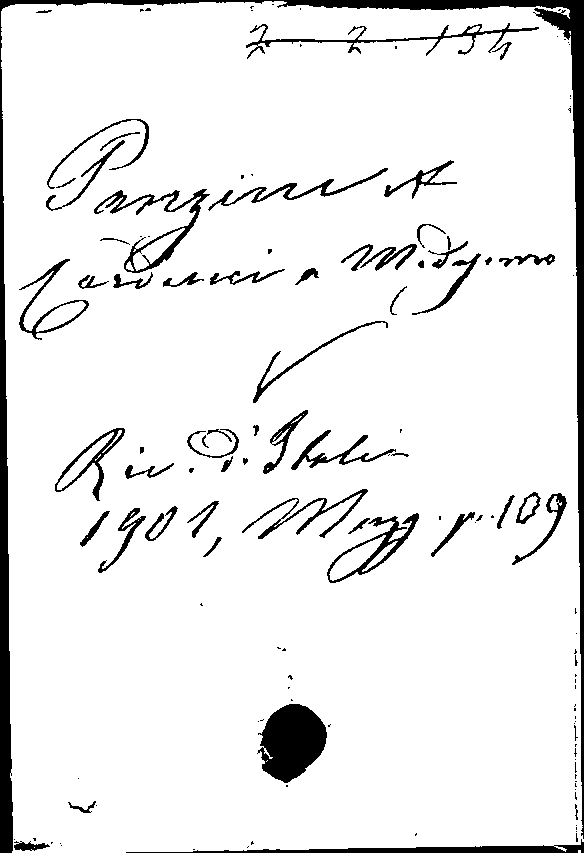 2. 2. 134
Panzini A
Carducci a
Riv. d'Italia
1901, Magg. p. 109